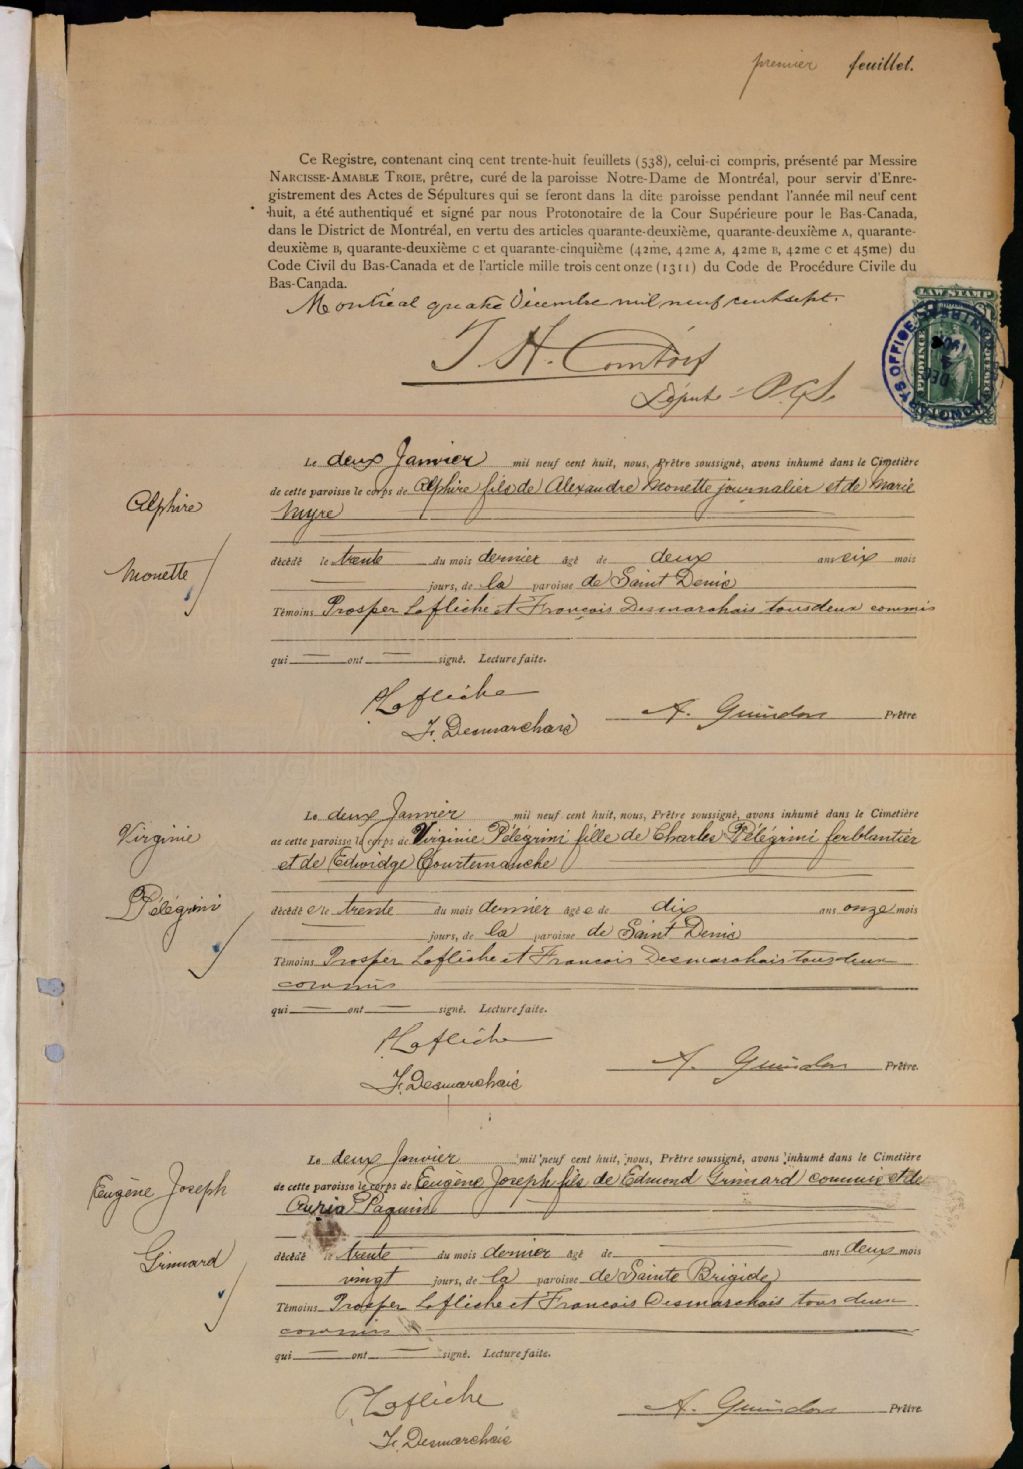 premier feuillet.
Ce Registre, contenant cinq cent trente-huit feuillets (538), celui-ci compris, présenté par Messire
NARCISSE-AMABLE TROIE, prêtre, curé de la paroisse Notre-Dame de Montréal, pour servir d'Enre-
gistrement des Actes de Sépultures qui se feront dans la dite paroisse pendant l'année mil neuf cent
huit, a été authentiqué et signé par nous Protonotaire de la Cour Supérieure pour le Bas-Canada,
dans le District de Montréal, en vertu des articles quarante-deuxième, quarante-deuxième A, quarante-
deuxième B, quarante-deuxième C et quarante-cinquième (42me, 42me A, 42me B, 42me C et 45me) du
Code Civil du Bas-Canada et de l'article mille trois cent onze (1311) du Code de Procédure Civile du
Bas-Canada.
Montréal quatre Décembre mil neuf cent sept.
LAW STAMP
J. H. Comtois
Député P.C.S.
Le deux Janvier mil neuf cent huit, nous, Prêtre soussigné, avons inhumé dans le Cimetière
de cette paroisse le corps de Alphire fils de Alexandre Monette journalier et de Marie
Myre
Alphire
Monette
décédé le trente du mois dernier âgé de deux ans six mois
jours, de la paroisse de Saint Denis
Témoins Prosper Laflèche et François Desmarchais tous deux commis
qui ont signé. Lecture faite.
P. Laflèche
F. Desmarchais
A. Guindon Prêtre
Le deux Janvier mil neuf cent huit, nous, Prêtre soussigné, avons inhumé dans le Cimetière
de cette paroisse le corps de Virginie Pélégrini fille de Charles Pélégrini ferblantier
et de Edwidge Courtemanche
Virginie
Pélégrini
décédée le trente du mois dernier âgée de dix ans onze mois
jours, de la paroisse de Saint Denis
Témoins Prosper Laflèche et François Desmarchais tous deux
commis
qui ont signé. Lecture faite.
P. Laflèche
F. Desmarchais
A. Guindon Prêtre.
Le deux Janvier mil neuf cent huit, nous, Prêtre soussigné, avons inhumé dans le Cimetière
de cette paroisse le corps de Eugène Joseph fils de Edmond Grimard commis et de
Paquin
Eugène Joseph
Grimard
décédé le trente du mois dernier âgé de ans deux mois
vingt jours, de la paroisse de Sainte Brigide
Témoins Prosper Laflèche et François Desmarchais tous deux
commis
qui ont signé. Lecture faite.
P. Laflèche
F. Desmarchais
A. Guindon Prêtre